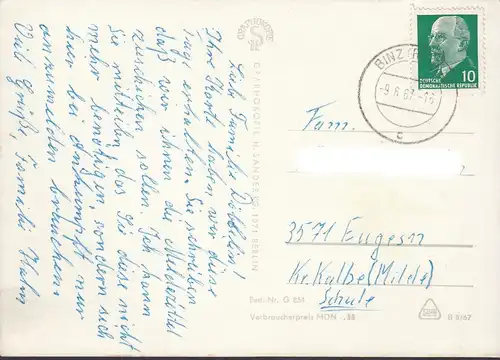 Liebe Familie Döbbelin!
Ihre Karte haben wir diese
Tage erhalten. Sie schreiben
daß wir ihnen die Meldezettel
zuschicken sollen. Ich kann
Sie mitteilen, das Sie diese nicht
mehr benötigen, sondern sich
hier bei Ankunft nur
anzumelden brauchen.
Viele Grüße, Familie Hahn
GRAPHOKOPIE H. SANDER KG 1071 BERLIN
Best.-Nr. G
Verbraucherpreis MDN -,88
BINZ
-9.6.67.-16
c
10
DEUTSCHE
DEMOKRATISCHE REPUBLIK
Fam.
3571 Eugesn
Kr. Kalbe (Milde)
Schule
B 8/67